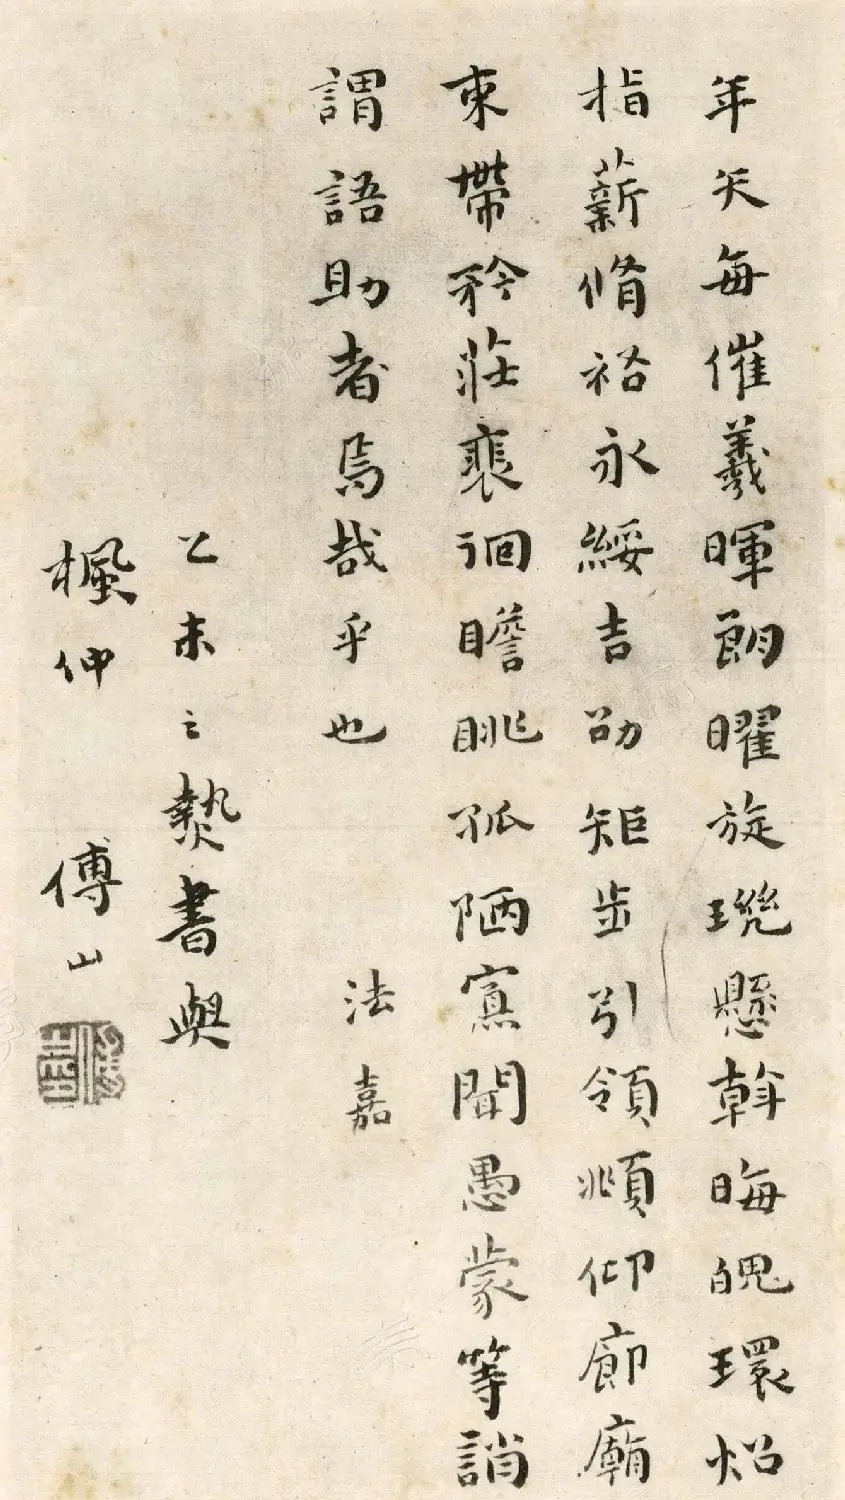 年矢每催羲暉朗曜旋璣懸斡晦魄環炤
指薪脩祜永綏吉劭矩步引領頫仰廊廟
束帶矜莊裵徊瞻眺孤陋寡聞愚蒙等誚
謂語助者焉哉乎也 法嘉
乙未之𣫍書與
楓仲 傅山